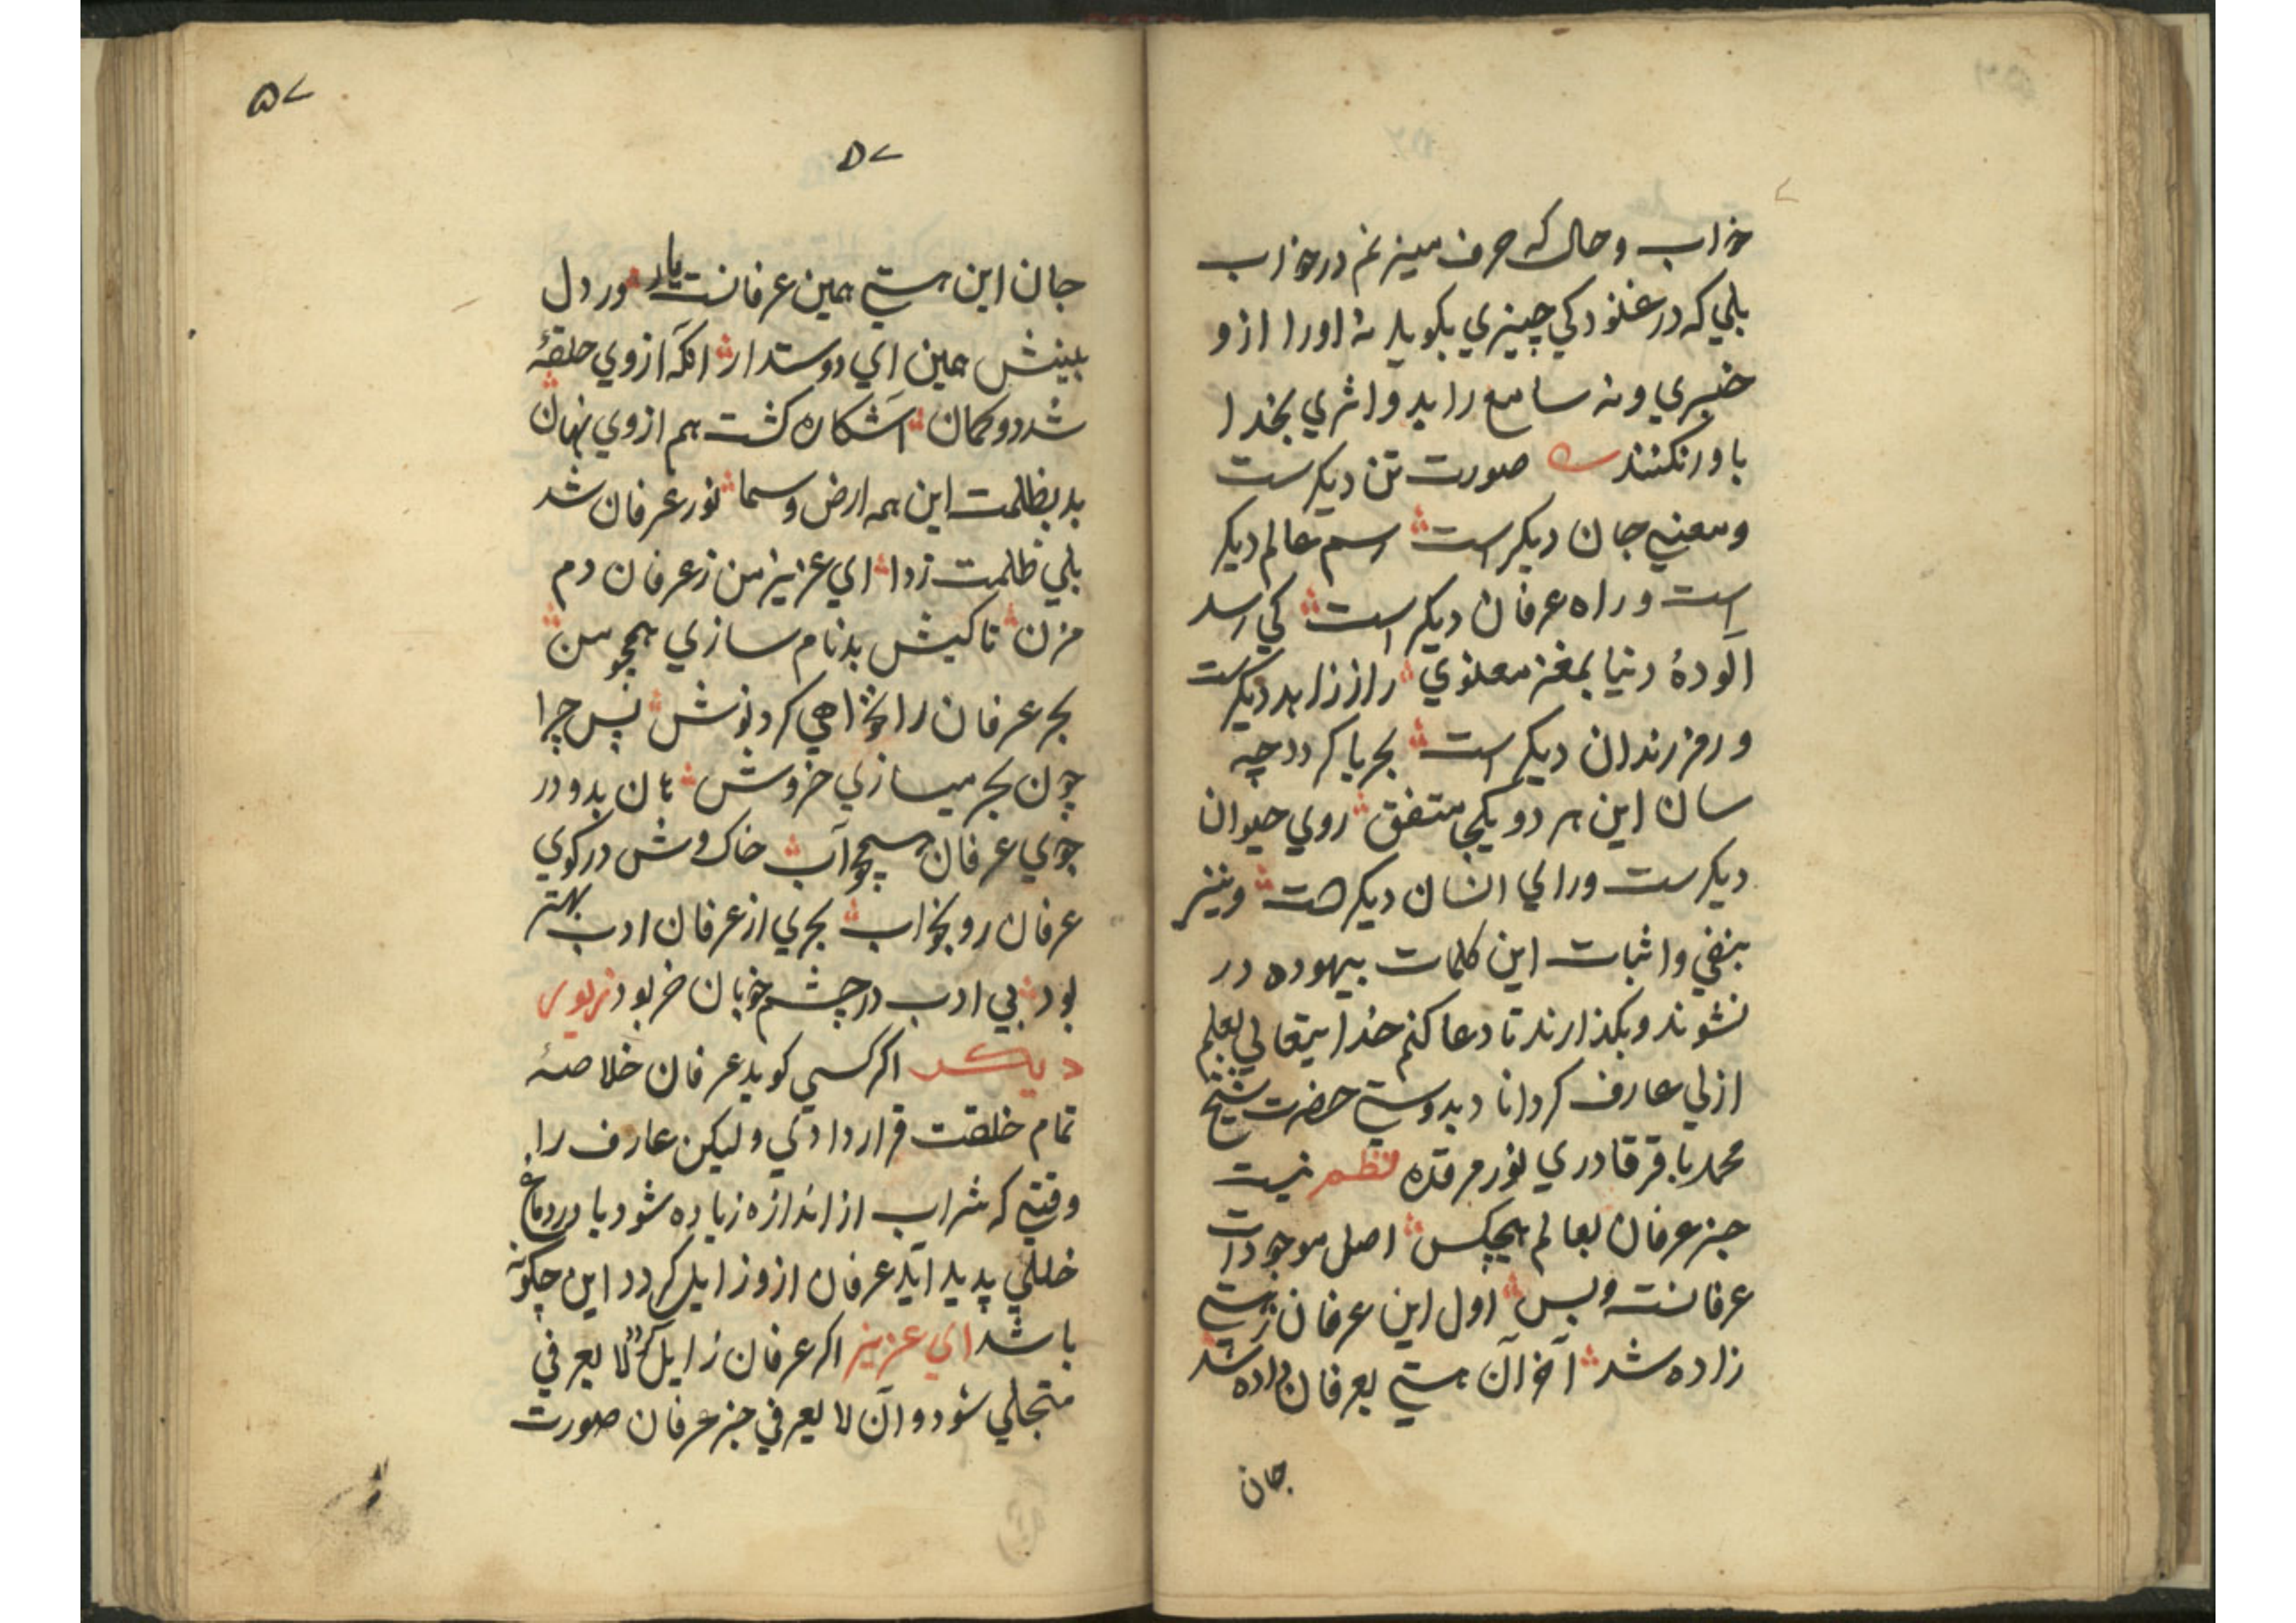 خواب وحال که حرف میزنم در خواب
بلی که در غنودکی چیزی بکوید نه اورا ازو
خبری ونه سامع را بدو اثری بخدا
باور نکنند صورت تن دیکرست
ومعنیِ جان دیکر است رسم عالم دیکر
است وراه عرفان دیکر است کی رسد
آلودهٔ دنیا بمغز معنوی راز زاهد دیکرست
ورمز رندان دیکر است بحر با کردد چه
سان این هر دو یکجا متفق روی حیوان
دیکرست ورای انسان دیکرست ونیز
بنفی واثبات این کلمات بیهوده در
نشوند وبکذارند تا دعا کنم خدایتعالی بعلم
ازلی عارف کرداناد بدوستی حضرت شیخ
محمد باقر قادری نور مرقده نظم نیست
جز عرفان بعالم هیچکس اصل موجودات
عرفانست وبس اول این عرفان زهستی
زاده شد آخر آن هستی بعرفان داده شد
جان
۵۷
۵۷
جان این هستی همین عرفانست یار ور دل
بینش همین ای دوستدار آنکه از وی حلقهٔ
شد دو کمان آشکاره کشت هم از وی نهان
بد بظلمت این همه ارض وسما نور عرفان شد
بلی ظلمت زدا ای عزیز من ز عرفان دم
مزن تا کیش بدنام سازی همچو من
بحر عرفان را نخواهی کرد نوش پس چرا
چون بحر میسازی خروش هان بدو در
جوی عرفان همچو آب خاک وش در کوی
عرفان رو بخواب بحری از عرفان ادب بهتر
بود بی ادب در چشم خوبان خر بود
دیکر اکر کسی کوید عرفان خلاصهٔ
تمام خلقت قرار دادی ولیکن عارف را
وقتی که شراب از اندازه زیاده شود یا در دماغ
خللی پدید آید عرفان ازو زایل کردد این چکونه
باشد ای عزیز اکر عرفان زایل لا یعرفی
متجلی شود وآن لا یعرفی جز عرفان صورت